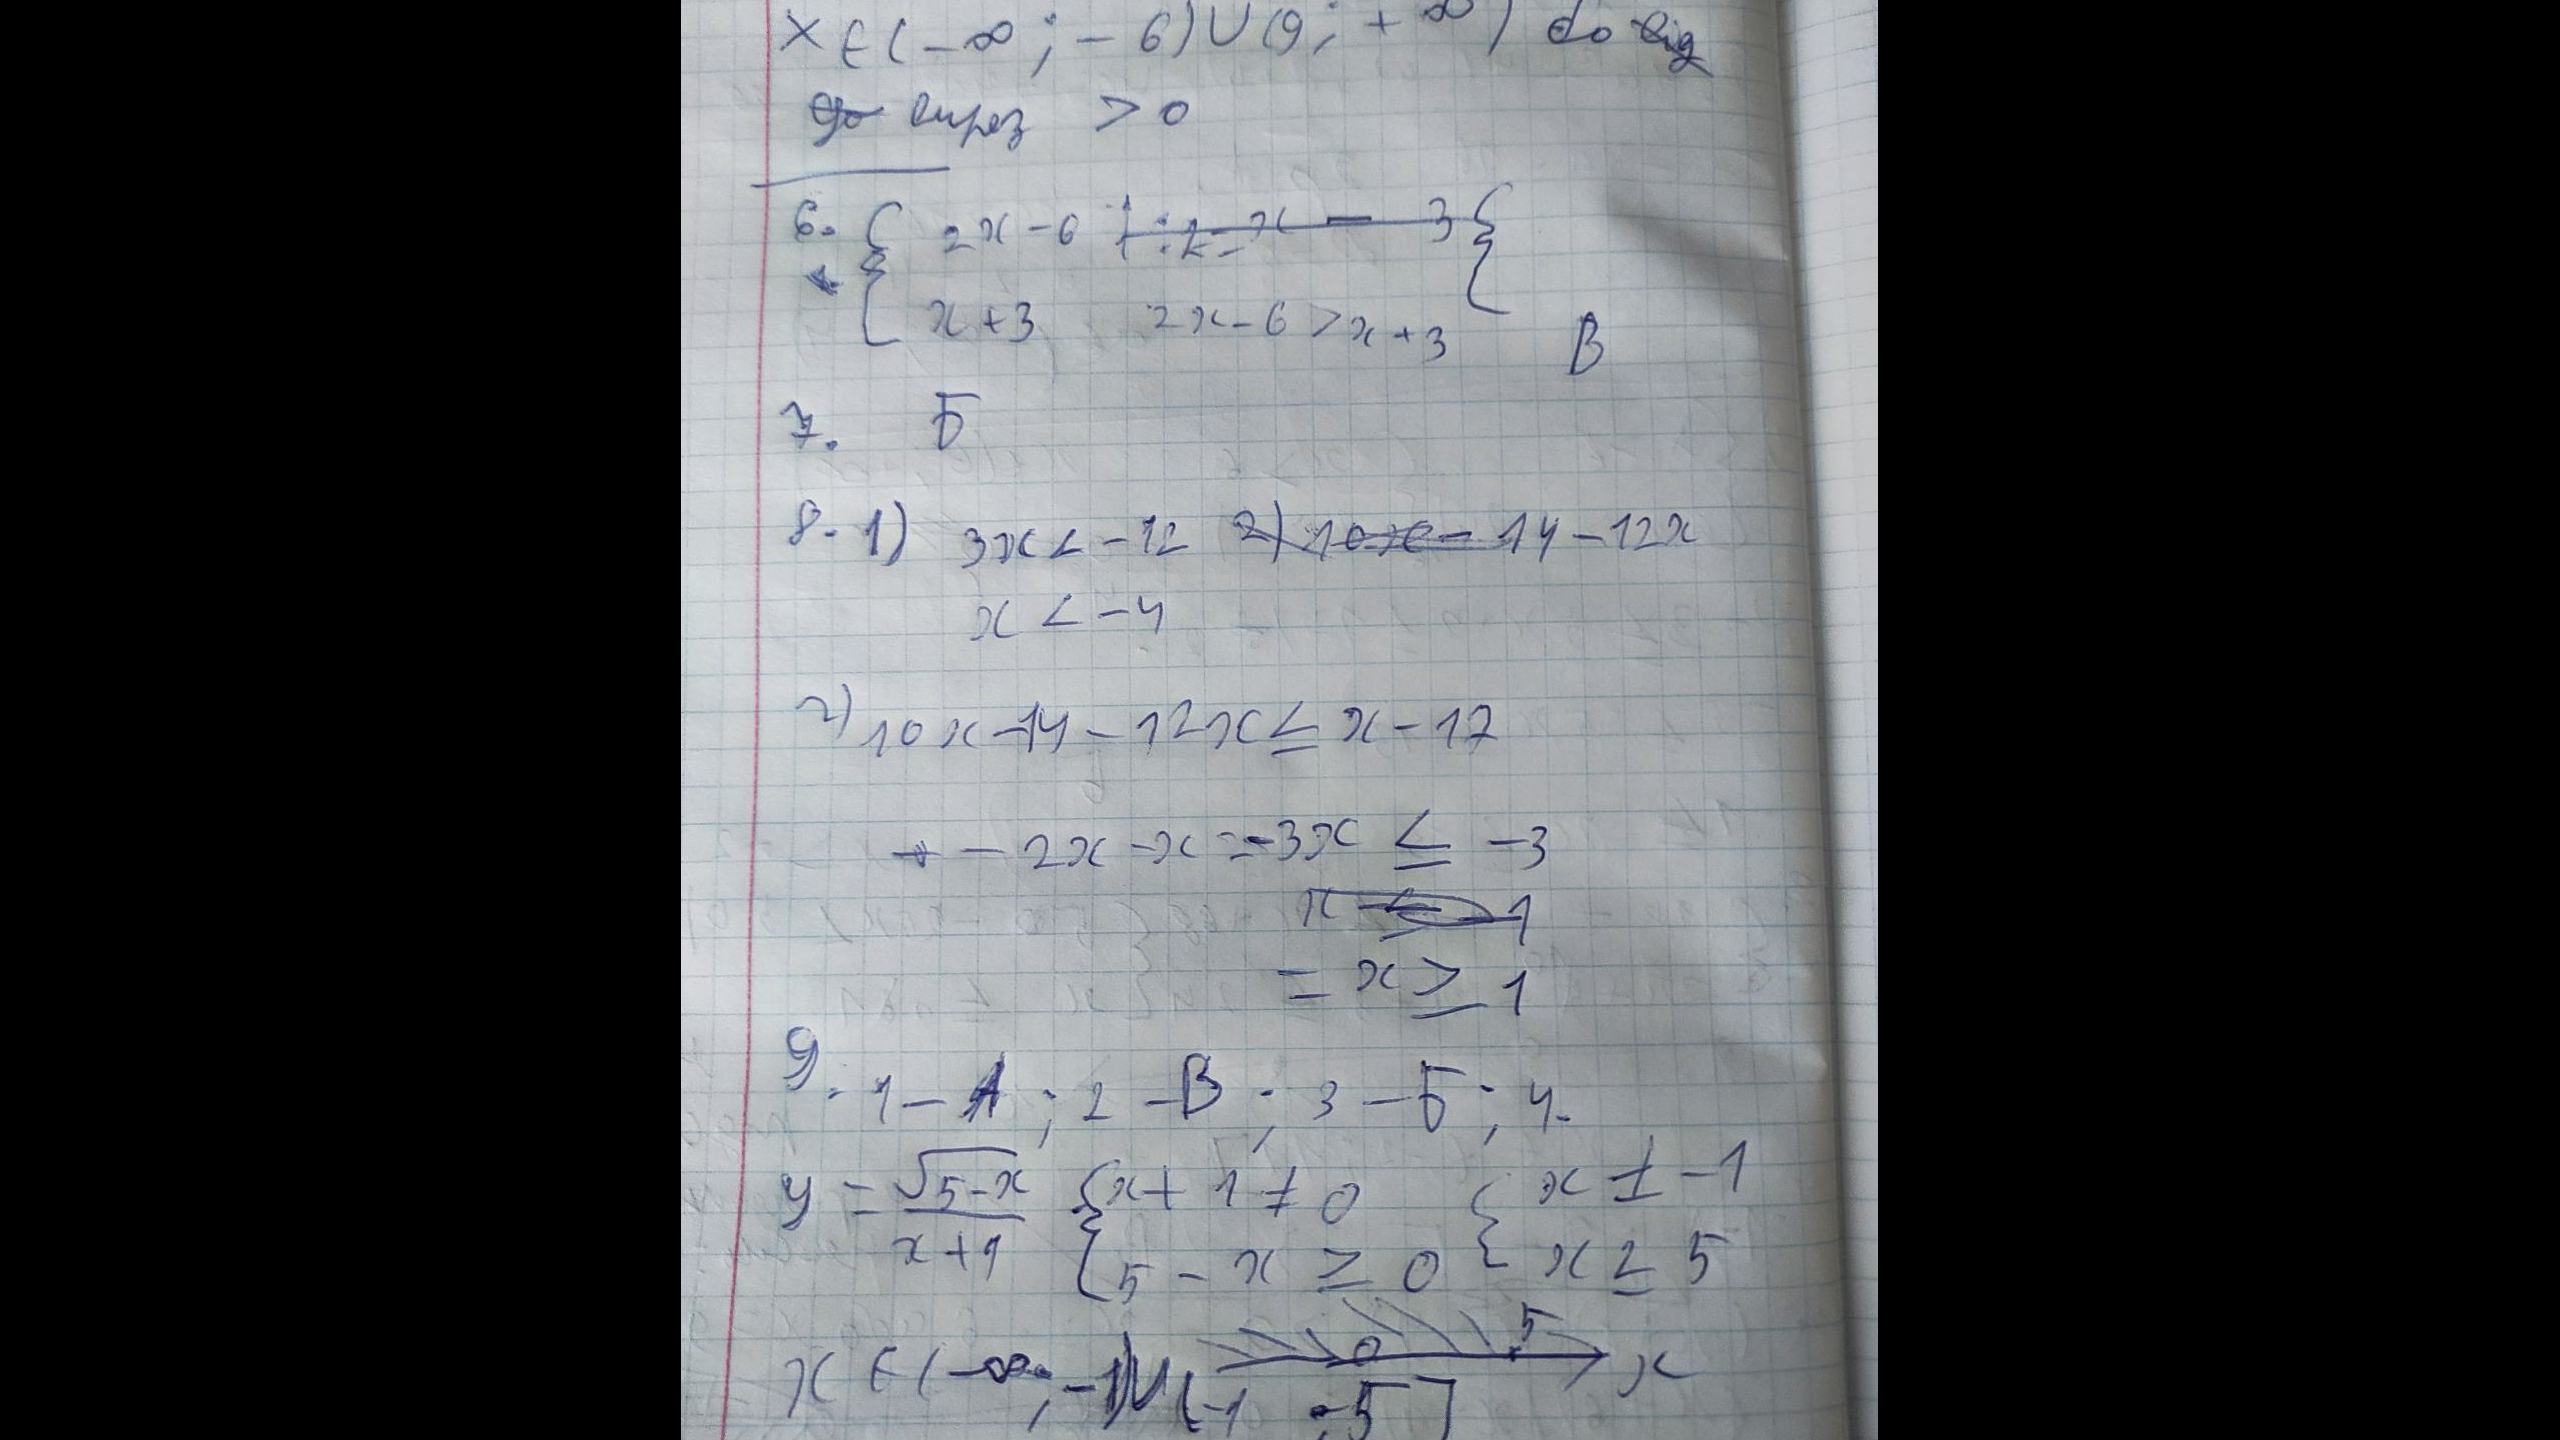 x ∈ (-∞; -6) ∪ (9; +∞) do
> 0
6. { 2x - 6 | : 2 = x - 3 {
x + 3 2x - 6 > x + 3
В
7. Б
8. 1) 3x < -12 2) 10x - 14 - 12x
x < -4
2) 10x - 14 - 12x ≤ x - 17
- 2x - x = -3x ≤ -3
x 1
= x ≥ 1
9. 1 - А ; 2 - В ; 3 - Б ; 4.
y = √(5-x) / (x+1) { x + 1 ≠ 0 { x ≠ -1
{ 5 - x ≥ 0 { x ≥ 5
0 5 x
x ∈ (-∞; -1) ∪ (-1 ; 5]